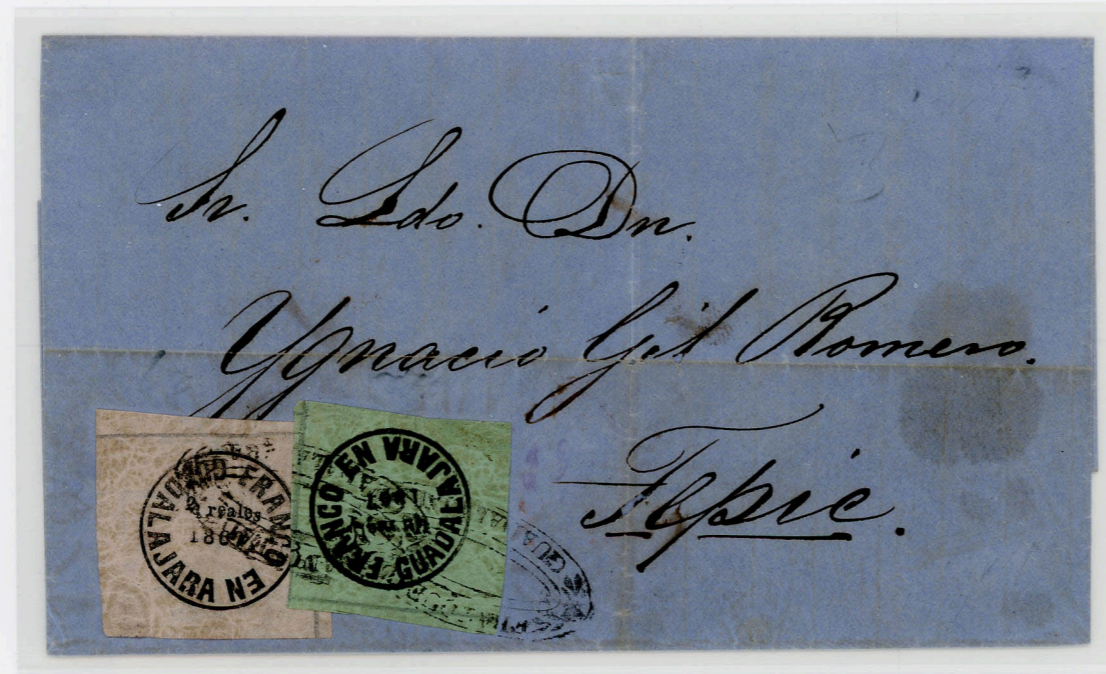 Sr. Ldo. Dn.
Ygnacio Gil Romero.
Tepic.
FRANCO EN GUADALAJARA
reales
FRANCO EN GUADALAJARA